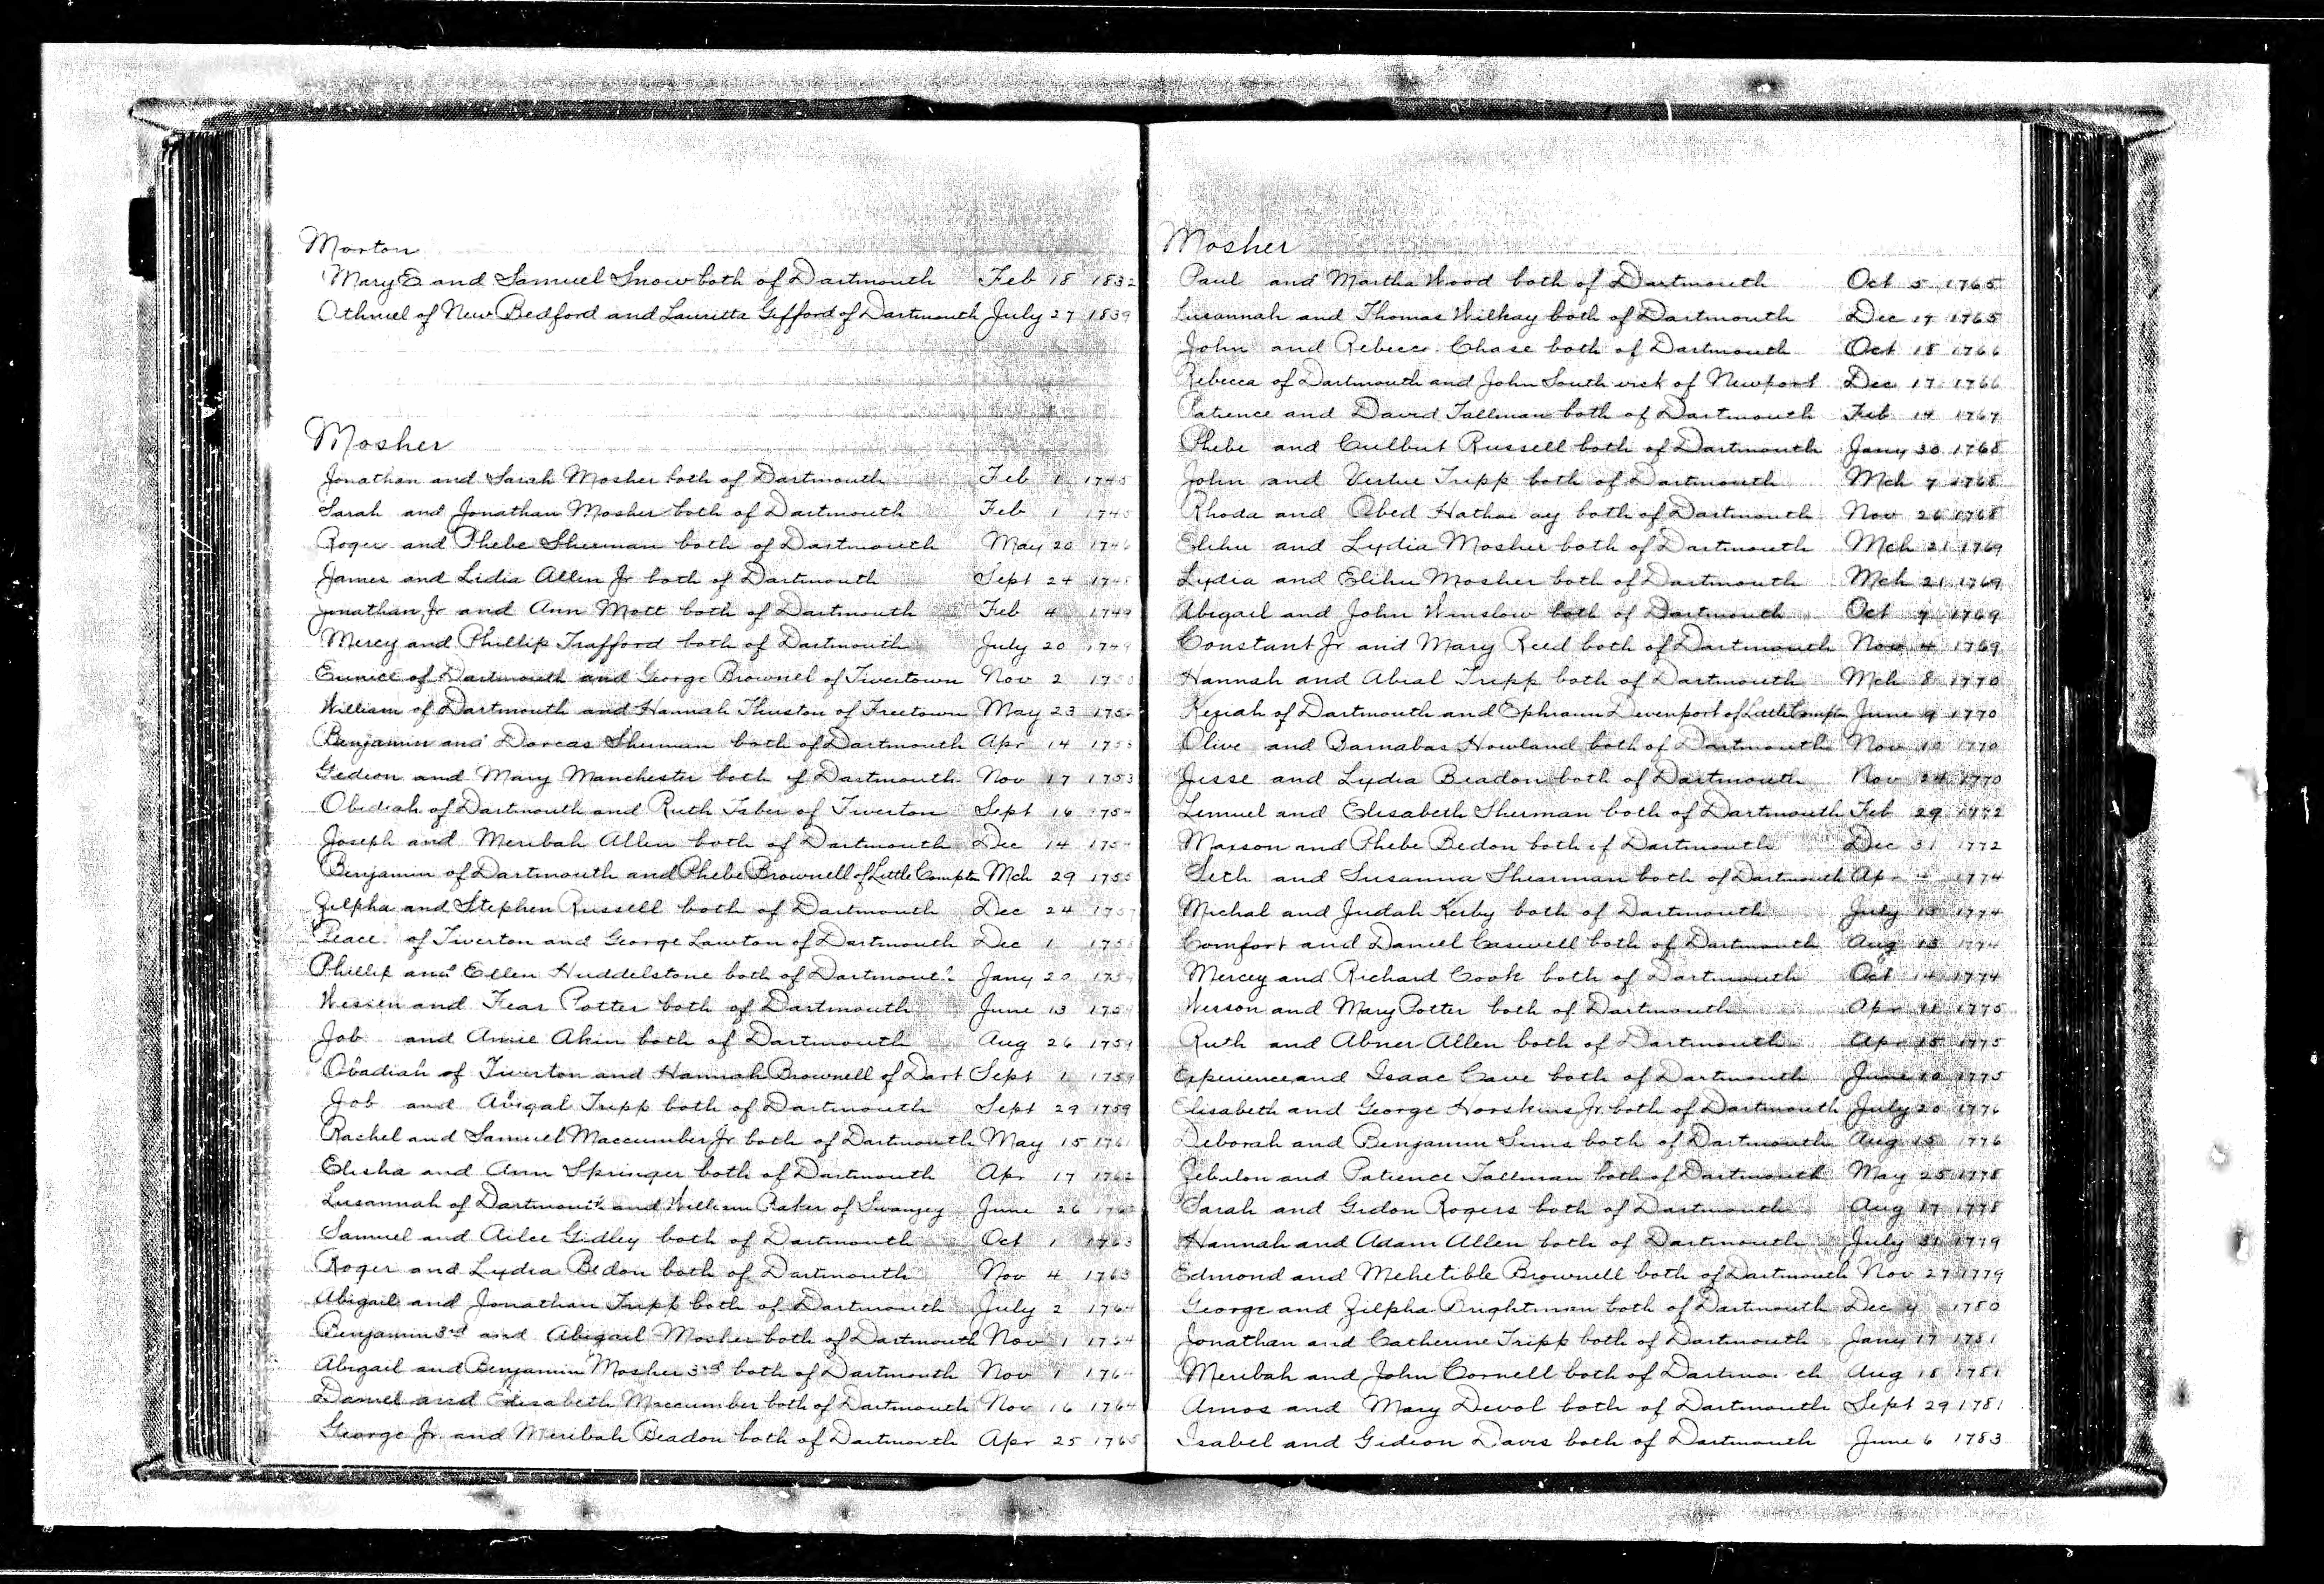 Morton
Mary E and Samuel Snow both of Dartmouth Feb 18 1832
Othniel of New Bedford and Lauretta Gifford of Dartmouth July 27 1839
Mosher
Jonathan and Sarah Mosher both of Dartmouth Feb 1 1745
Sarah and Jonathan Mosher both of Dartmouth Feb 1 1745
Roger and Phebe Sherman both of Dartmouth May 20 1746
James and Lidia Allen Jr both of Dartmouth Sept 24
Jonathan Jr and Ann Mott both of Dartmouth Feb 4 1749
Mercy and Phillip Trafford both of Dartmouth July 20 1749
Eunice of Dartmouth and George Brownel of Tivertown Nov 2
William of Dartmouth and Hannah Thuston of Freetown May 23
Benjamin and Dorcas Sherman both of Dartmouth Apr 14 1753
Gedeon and Mary Manchester both of Dartmouth Nov 17 1753
Obediah of Dartmouth and Ruth Taber of Tiverton Sept 16
Joseph and Meribah Allen both of Dartmouth Dec 14
Benjamin of Dartmouth and Phebe Brownell of Little Compton Mch 29 1755
Zilpha and Stephen Russell both of Dartmouth Dec 24
Peace of Tiverton and George Lawton of Dartmouth Dec 1
Phillip and Ellen Huddelstone both of Dartmouth Jany 20
Wesson and Fear Potter both of Dartmouth June 13
Job and Amie Akin both of Dartmouth Aug 26 1759
Obadiah of Tiverton and Hannah Brownell of Dart Sept 1 1759
Job and Abigal Tripp both of Dartmouth Sept 29 1759
Rachel and Samuel Maccumber Jr both of Dartmouth May 15 1761
Elisha and Ann Springer both of Dartmouth Apr 17 1762
Susannah of Dartmouth and William Baker of Swanzey June 26 1762
Samuel and Ailce Gidley both of Dartmouth Oct 1 1763
Roger and Lydia Bedon both of Dartmouth Nov 4 1763
Abigail and Jonathan Tripp both of Dartmouth July 2 1764
Benjamin 3rd and Abigail Mosher both of Dartmouth Nov 1 1764
Abigail and Benjamin Mosher 3rd both of Dartmouth Nov 1 1764
Daniel and Elisabeth Maccumber both of Dartmouth Nov 16 1764
George Jr. and Meribah Beadon both of Dartmouth Apr 25 1765
Mosher
Paul and Martha Wood both of Dartmouth Oct 5 1765
Susannah and Thomas Wilkay both of Dartmouth Dec 17 1765
John and Rebecc Chase both of Dartmouth Oct 18 1766
Rebecca of Dartmouth and John Southwick of Newport Dec 17 1766
Patience and David Tallman both of Dartmouth Feb 14 1767
Phebe and Culbut Russell both of Dartmouth Jany 30 1768
John and Vertue Tripp both of Dartmouth Mch 7 1768
Rhoda and Obed Hathaway both of Dartmouth Nov 26 1768
Elihu and Lydia Mosher both of Dartmouth Mch 21 1769
Lydia and Elihu Mosher both of Dartmouth Mch 21 1769
Abigail and John Winslow both of Dartmouth Oct 7 1769
Constant Jr and Mary Reed both of Dartmouth Nov 4 1769
Hannah and Abial Tripp both of Dartmouth Mch 8 1770
Keziah of Dartmouth and Ephraim Devenport of Little Compton June 9 1770
Olive and Barnabas Howland both of Dartmouth Nov 10 1770
Jesse and Lydia Beadon both of Dartmouth Nov 24 1770
Lemuel and Elisabeth Sherman both of Dartmouth Feb 29 1772
Maxson and Phebe Bedon both of Dartmouth Dec 31 1772
Seth and Susanna Shearman both of Dartmouth Apr 4 1774
Michal and Judah Kerby both of Dartmouth July 15 1774
Comfort and Daniel Caswell both of Dartmouth Aug 13 1774
Mercey and Richard Cook both of Dartmouth Oct 14 1774
Wesson and Mary Potter both of Dartmouth Apr 11 1775
Ruth and Abner Allen both of Dartmouth Apr 15 1775
Experience and Isaac Cave both of Dartmouth June 10 1775
Elisabeth and George Horskins Jr. both of Dartmouth July 20 1776
Deborah and Benjamin Sims both of Dartmouth Aug 15 1776
Zebulon and Patience Tallman both of Dartmouth May 25 1778
Sarah and Gidon Rogers both of Dartmouth Aug 17 1778
Hannah and Adam Allen both of Dartmouth July 31 1779
Edmond and Mehetible Brownell both of Dartmouth Nov 27 1779
George and Zilpha Brightman both of Dartmouth Dec 4 1780
Jonathan and Catherine Tripp both of Dartmouth Jany 17 1781
Meribah and John Cornell both of Dartmouth Aug 18 1781
Amos and Mary Devol both of Dartmouth Sept 29 1781
Isabel and Gideon Davis both of Dartmouth June 6 1783